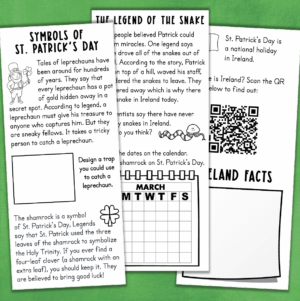 SYMBOLS OF
ST. PATRICK'S DAY
Tales of leprechauns have
been around for hundreds
of years. They say that
every leprechaun has a pot
of gold hidden away in a
secret spot. According to legend, a
leprechaun must give his treasure to
anyone who captures him. But they
are sneaky fellows. It takes a tricky
person to catch a leprechaun.
Design a trap
you could use
to catch a
leprechaun.
The shamrock is a symbol
of St. Patrick's Day. Legends
say that St. Patrick used the three
leaves of the shamrock to symbolize
the Holy Trinity. If you ever find a
four-leaf clover (a shamrock with an
extra leaf), you should keep it. They
are believed to bring good luck!
THE LEGEND OF THE SNAKE
people believed Patrick could
m miracles. One legend says
drove all of the snakes out of
. According to the story, Patrick
n top of a hill, waved his staff,
dered the snakes to leave. They
ered away which is why there
snake in Ireland today.
entists say there have never
y snakes in Ireland.
o you think?
he dates on the calendar.
shamrock on St. Patrick's Day.
MARCH
M T W T F S
St. Patrick's Day is
a national holiday
in Ireland.
e is Ireland? Scan the QR
elow to find out:
ELAND FACTS